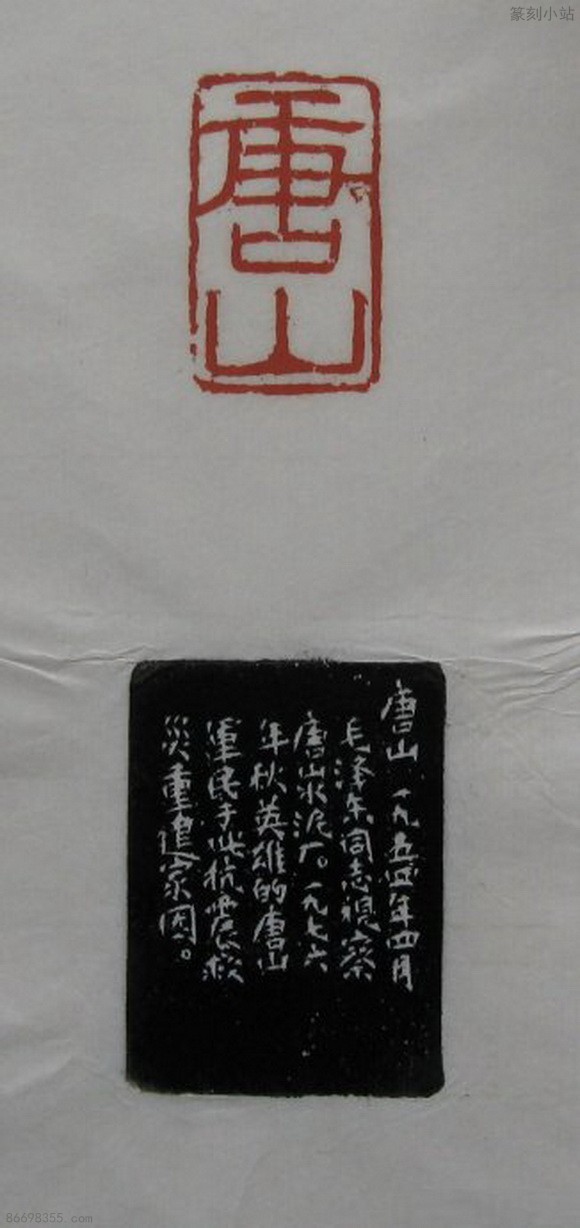 篆刻小站
唐山
唐山 一九五四年四月
毛泽东同志视察
唐山水泥厂。一九七六
年秋英雄的唐山
军民于此抗震救
災重建家园。
86698355.com